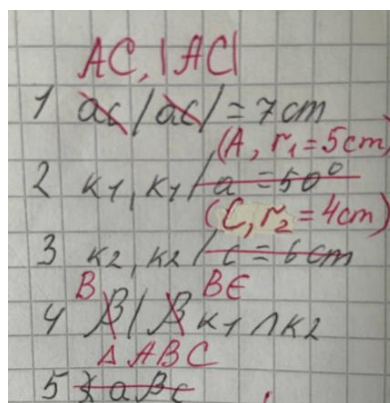 AC, |AC|
1 ac / ac / = 7cm
(A, r₁=5cm)
2 к1, к1 / a = 50°
(C, r₂=4cm)
3 к2, к2 / c = 6 cm
B BЄ
4 B / B к1 ∩ к2
Δ ABC
5 aBc